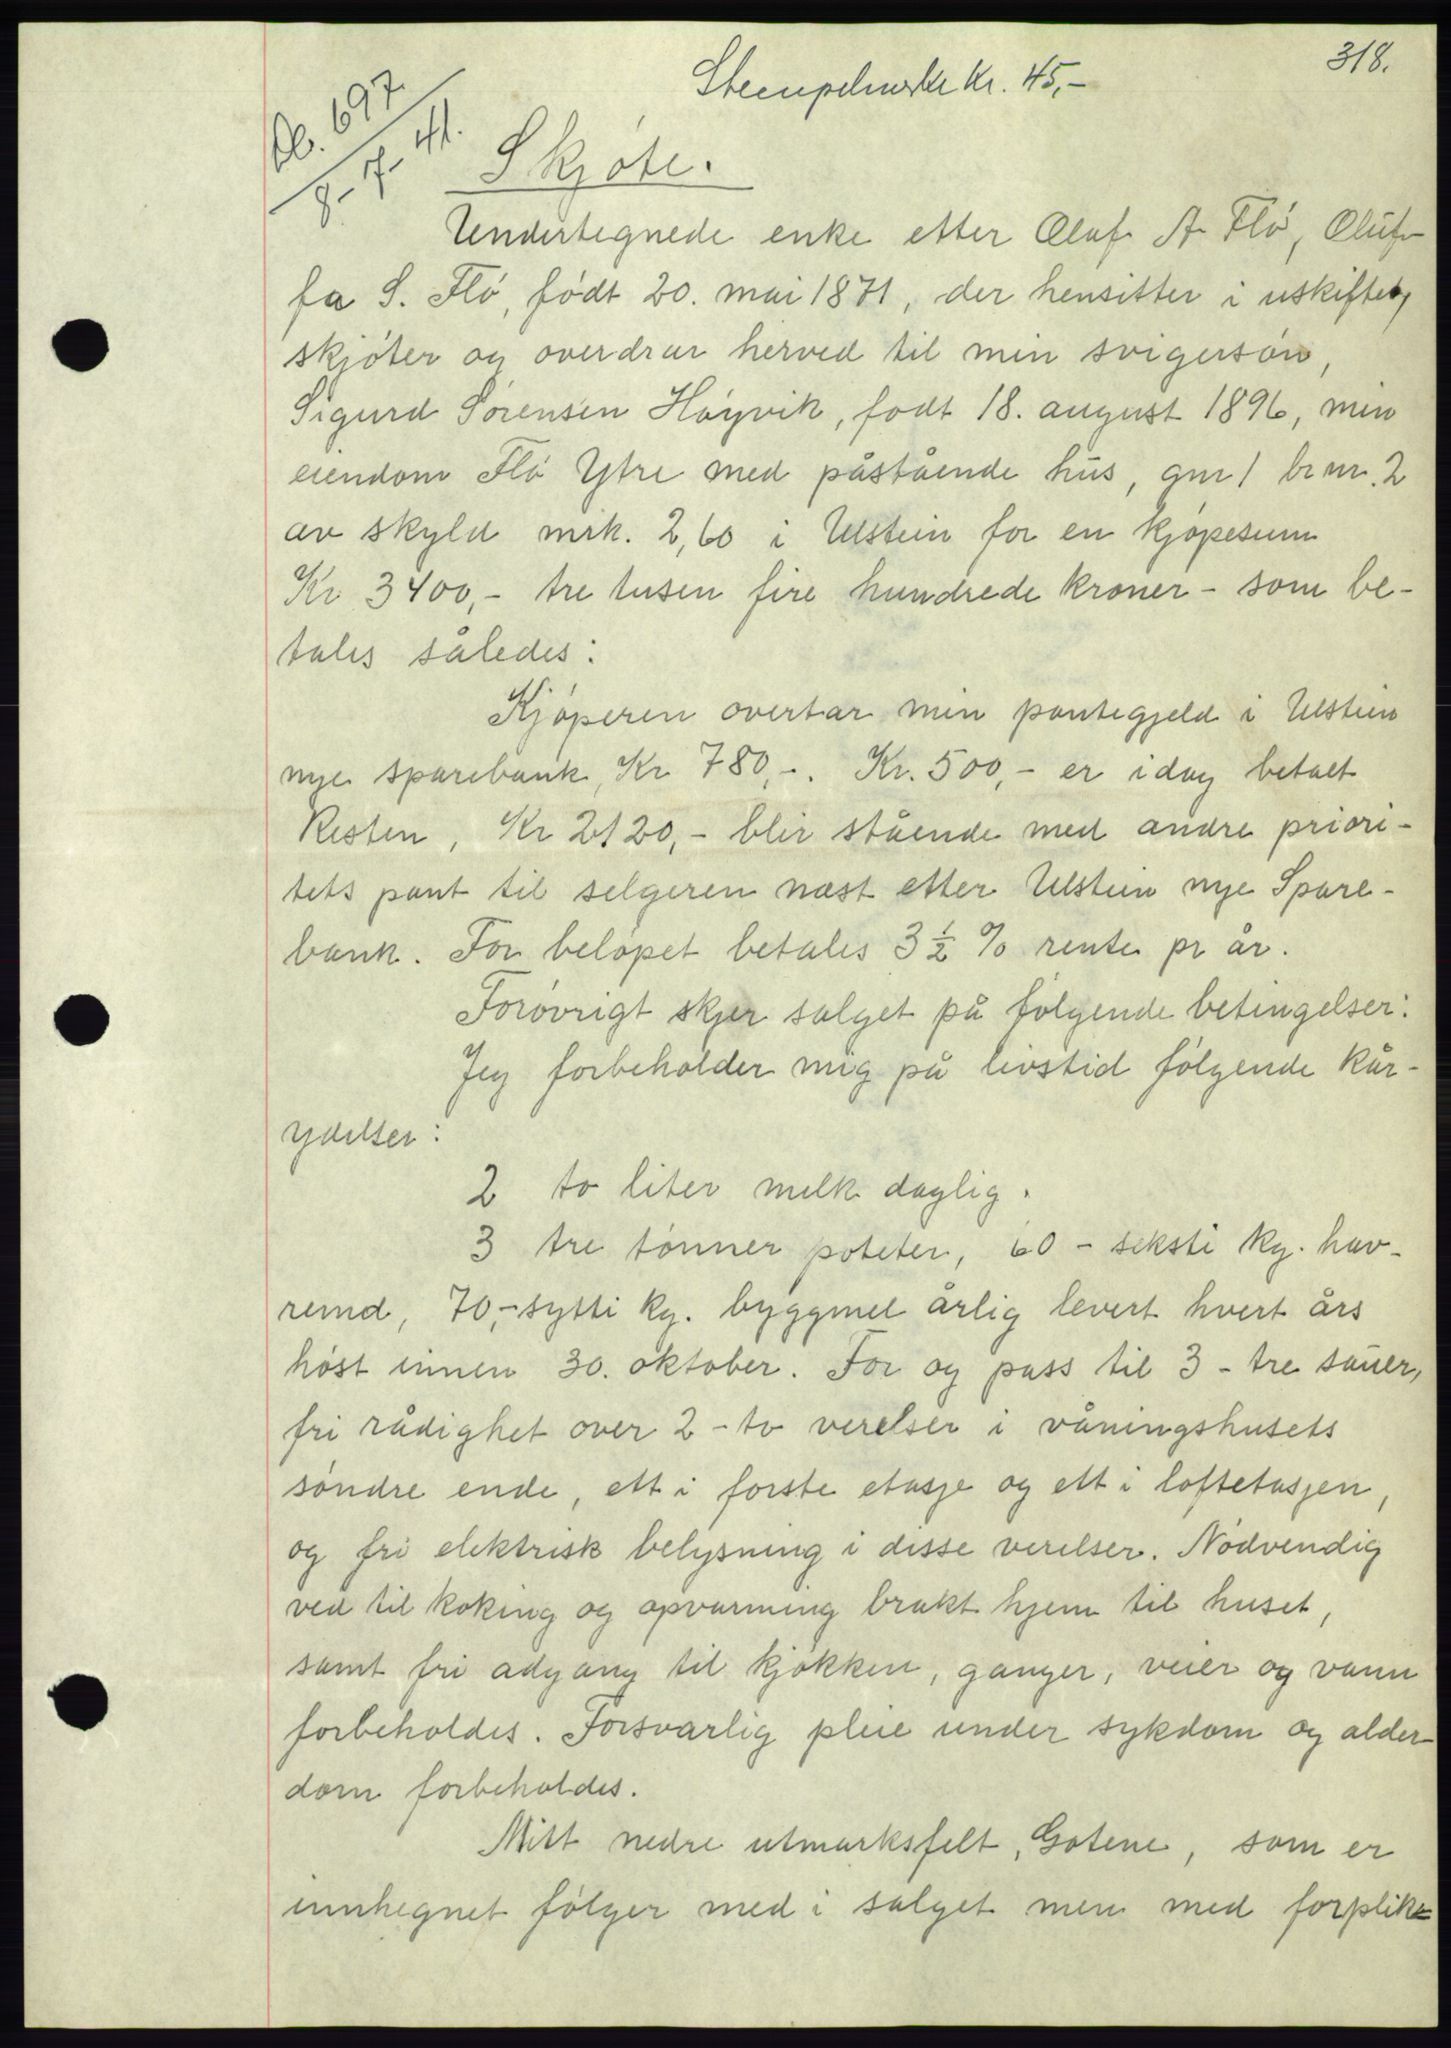 318.
Stempelmerke Kr. 45,-
Db. 697
8-7-41.
Skjøte.
Undertegnede enke etter Olaf A Flø, Oluf-
fa S. Flø, født 20. mai 1871, der hensitter i uskiftebo,
skjøter og overdrar herved til min svigersøn,
Sigurd Sørensen Høyvik, født 18. august 1896, min
eiendom Flø Ytre med påstående hus, gnr 1 brnr. 2
av skyld mrk. 2,60 i Ulstein for en kjøpesum
Kr 3400,- tre tusen fire hundrede kroner - som be-
tales således:
Kjøperen overtar min pantegjeld i Ulstein
nye sparebank, Kr 780,-. Kr. 500,- er idag betalt
Resten, Kr 2120,- blir stående med andre priori-
tets pant til selgeren næst etter Ulstein nye Spare-
bank. For beløpet betales 3 ½ % rente pr år.
Forøvrigt skjer salget på følgende betingelser:
Jeg forbeholder mig på livstid følgende kår-
ydelser:
2 to liter melk daglig.
3 tre tønner poteter, 60 - seksti kg. hav-
remel, 70,- sytti kg. byggmel årlig levert hvert års
høst innen 30. oktober. For og pass til 3 - tre sauer,
fri rådighet over 2 - to verelser i våningshusets
søndre ende, ett i første etasje og ett i loftetasjen,
og fri elektrisk belysning i disse verelser. Nødvendig
ved til koking og opvarming brakt hjem til huset,
samt fri adgang til kjøkken, ganger, veier og vann
forbeholdes. Forsvarlig pleie under sykdom og alder-
dom forbeholdes.
Mitt nedre utmarksfelt, Gotene, som er
innhegnet følger med i salget men med forplik=